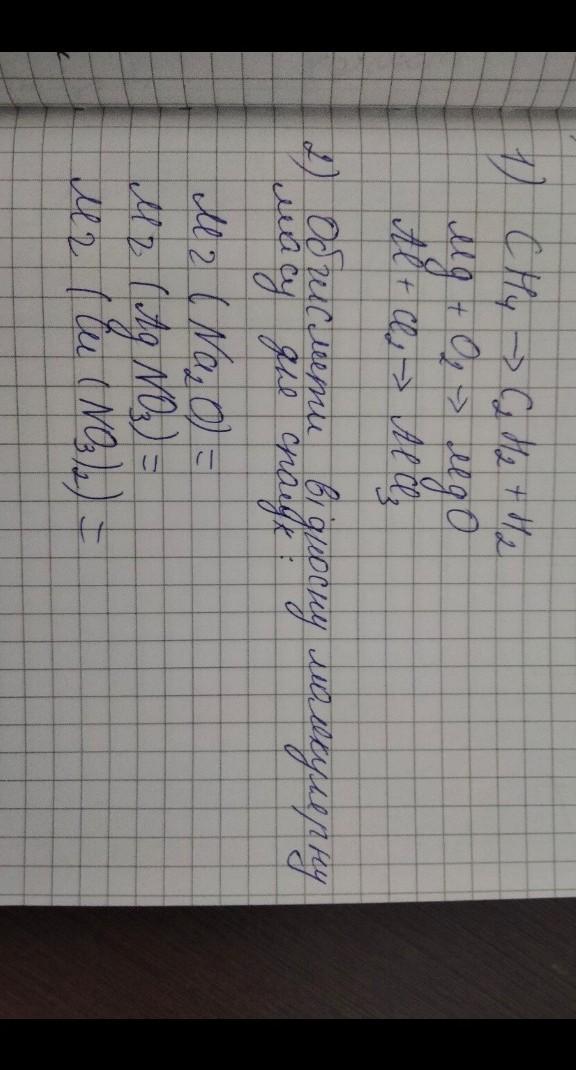 1) CH₄ → C₂H₂ + H₂
Mg + O₂ → MgO
Al + Cl₂ → AlCl₃
2) Обчислити відносну молекулярну
масу для сполук:
Mr (Na₂O) =
Mr (AgNO₃) =
Mr (Cu(NO₃)₂) =